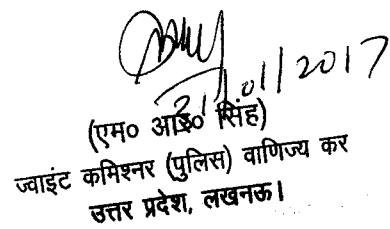 31/01/2017
(एम० आई० सिंह)
ज्वाइंट कमिश्नर (पुलिस) वाणिज्य कर
उत्तर प्रदेश, लखनऊ।